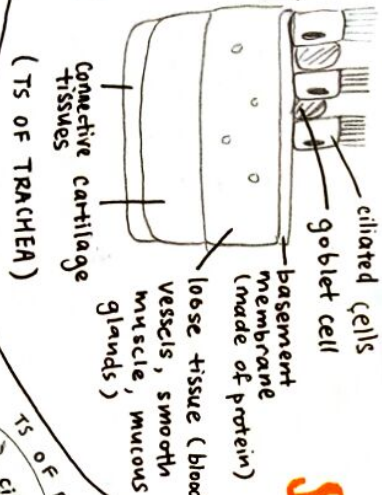 ciliated cells
goblet cell
basement
membrane
(made of protein)
loose tissue (blood
vessels, smooth
muscle, mucous
glands)
cartilage
Connective
tissues
(TS OF TRACHEA)
TS OF
ci